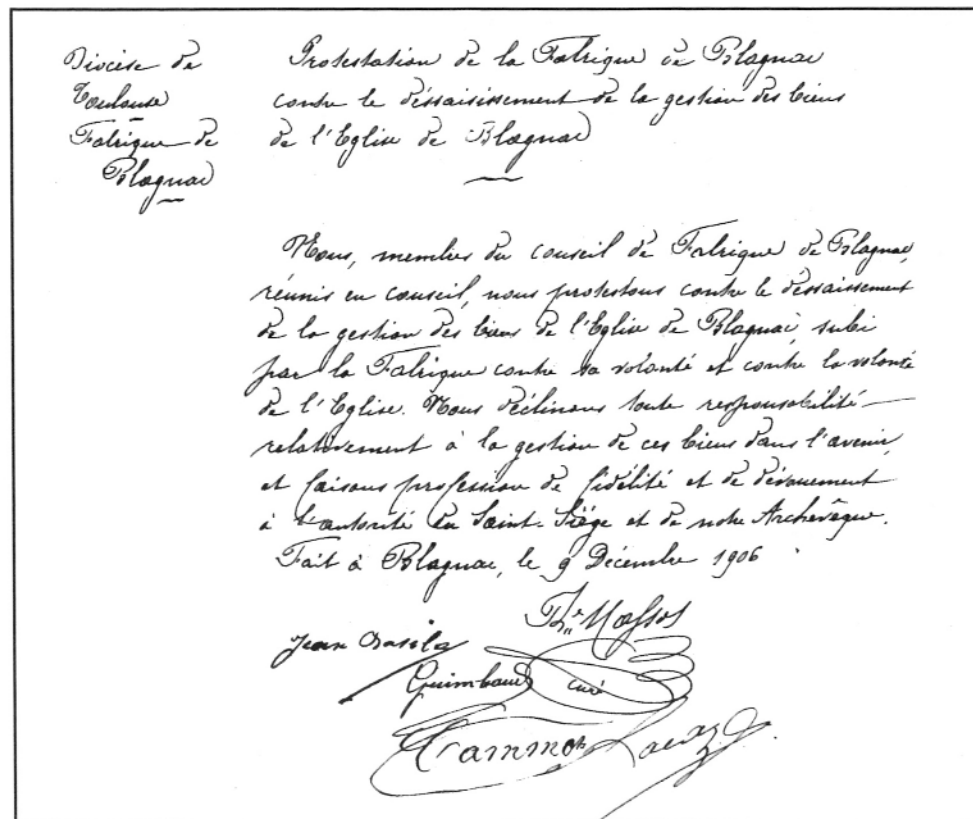 Diocèse de
Toulouse
Fabrique de
Blagnac
Protestation de la Fabrique de Blagnac
contre le déssaisissement de la gestion des biens
de l'Eglise de Blagnac
Nous, membres du conseil de Fabrique de Blagnac,
réunis en conseil, nous protestons contre le déssaisissement
de la gestion des biens de l'Eglise de Blagnac, subi
par la Fabrique contre sa volonté et contre la volonté
de l'Eglise. Nous déclinons toute responsabilité
relativement à la gestion de ces biens dans l'avenir,
et faisons profession de fidélité et de dévouement
à l'autorité du Saint-Siège et de notre Archevêque.
Fait à Blagnac, le 9 Décembre 1906
Jean
Guimbaud curé